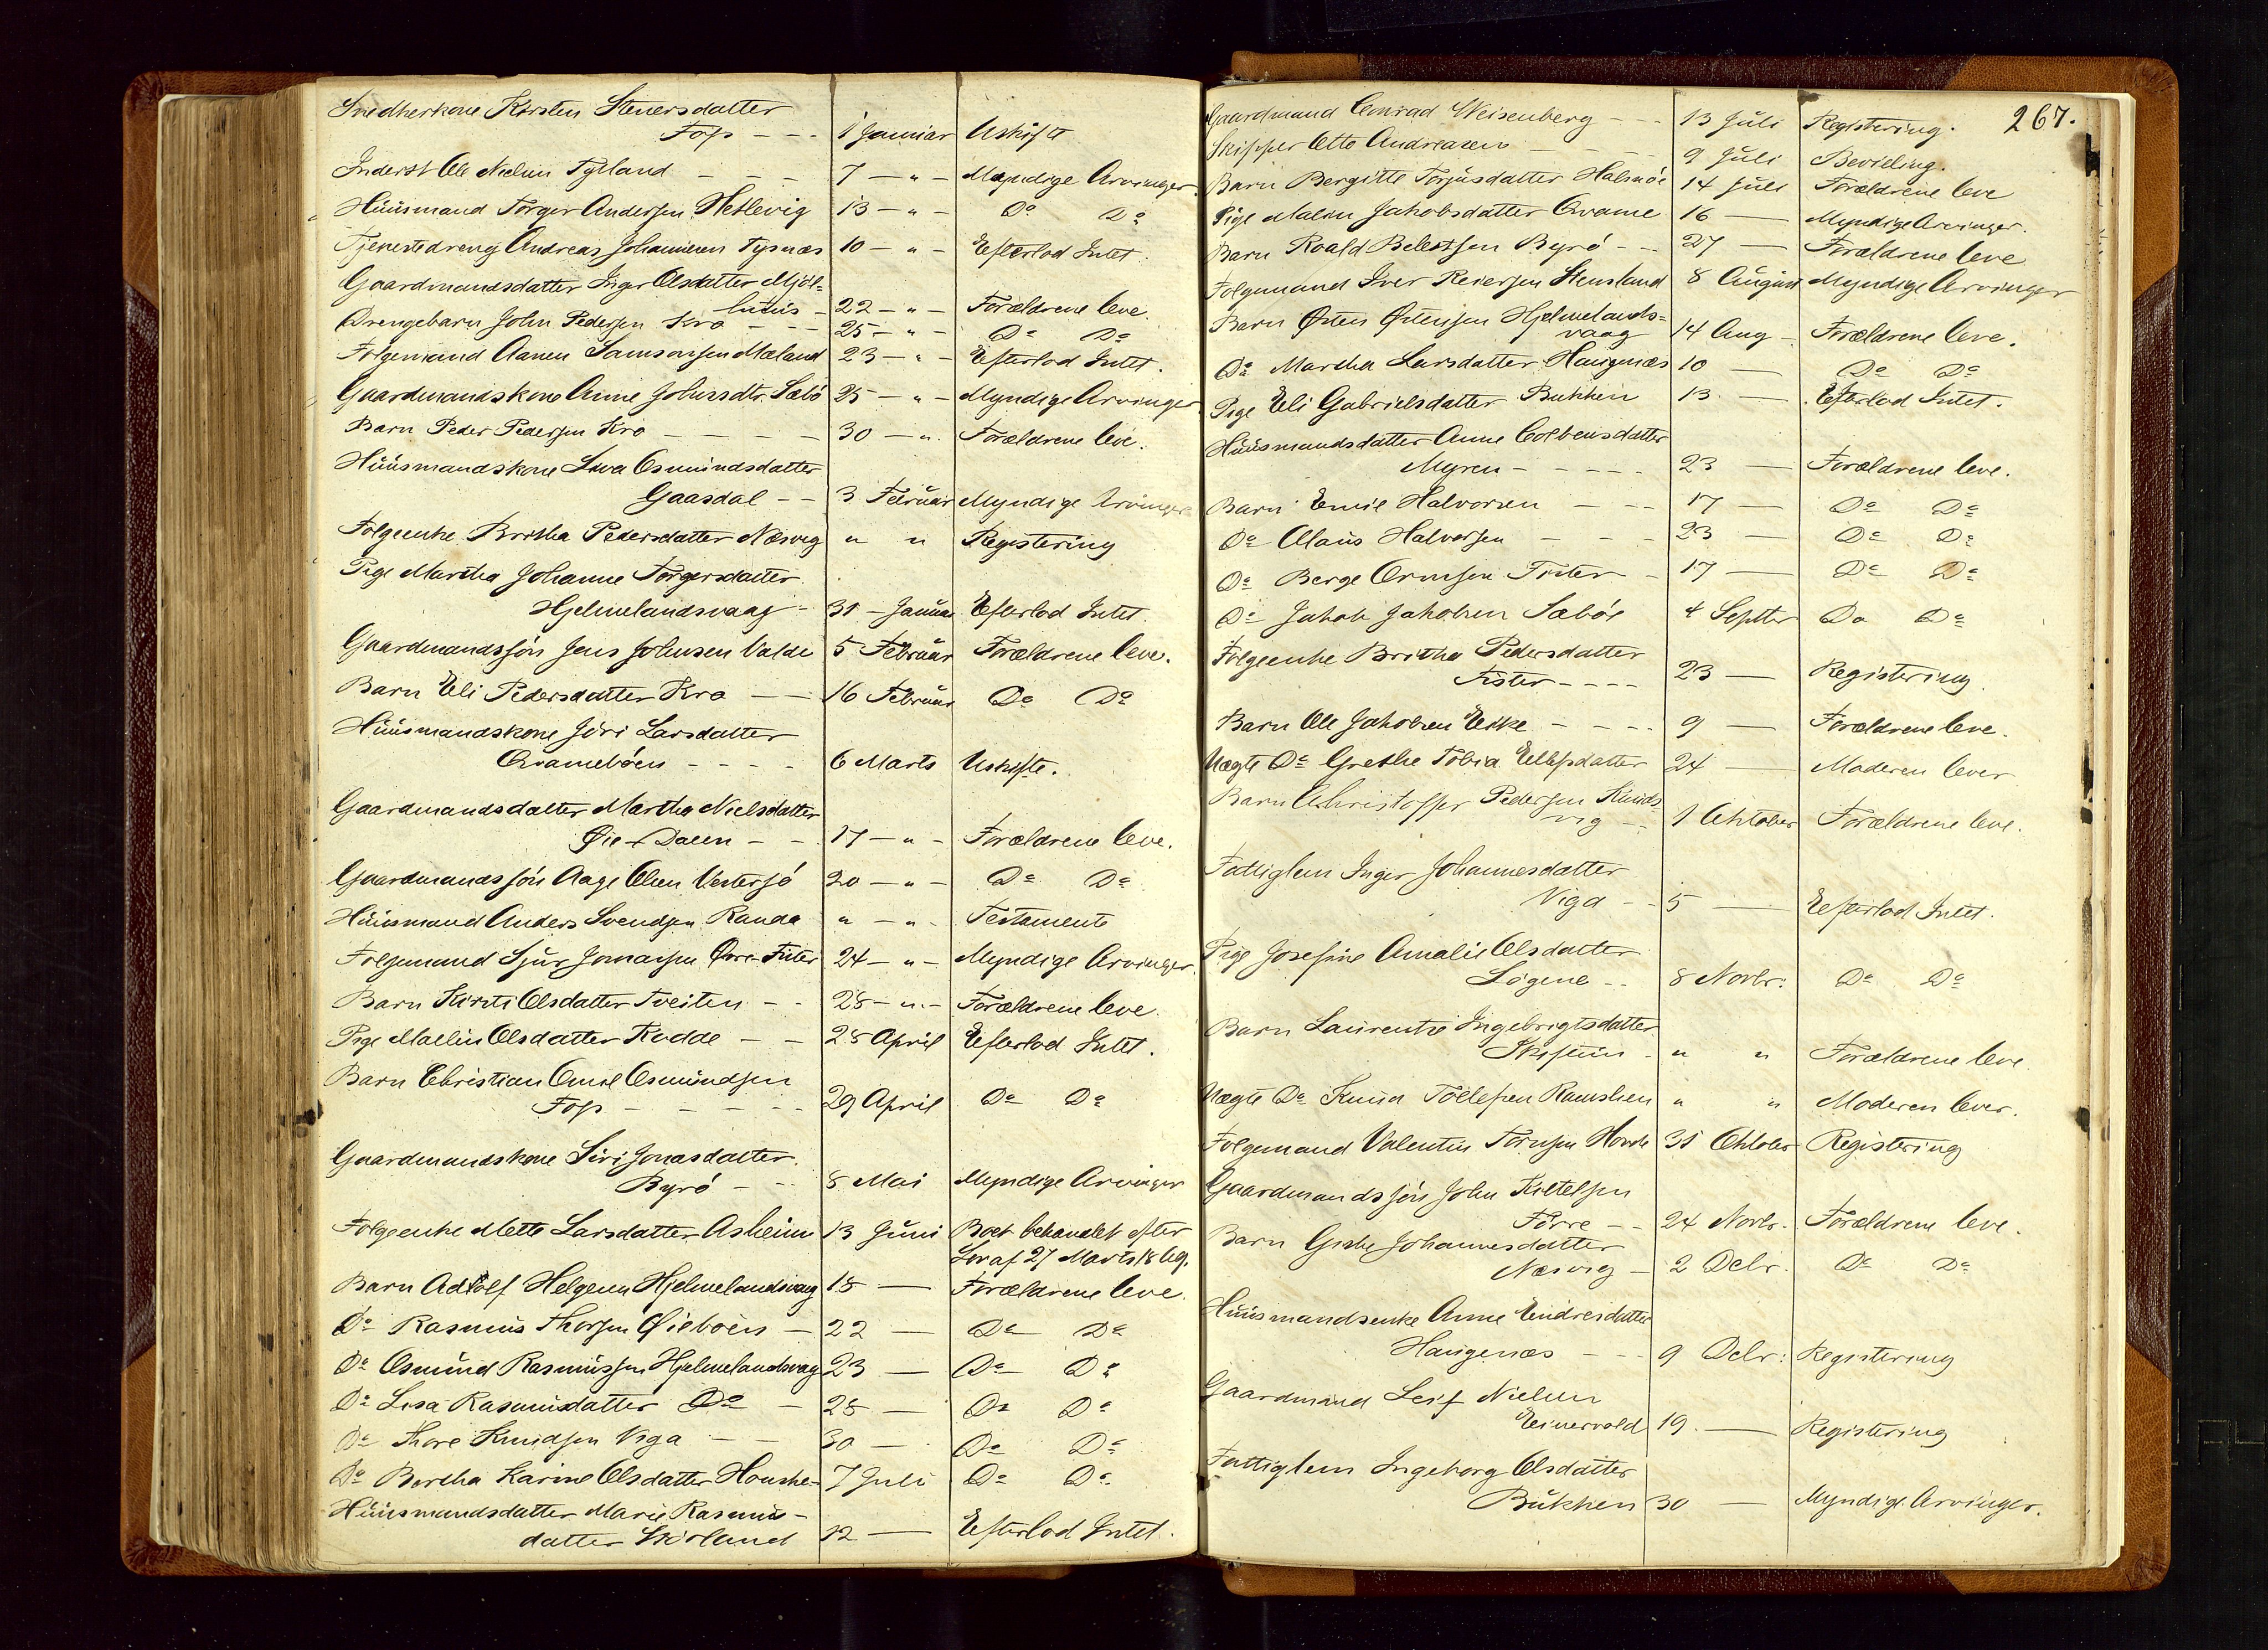 Snedkerkone Kirsten Stenersdatter
Fos - - - 1 Januar Uskifte
Inderst Ole Nielsen Tytland - - - 7 - " - Myndige Arvinger
Huusmand Torger Andersen Hetlevig 13 - " - Do Do
Tjenestedreng Andreas Johannesen Tysnæs 10 - " - Efterlod Intet.
Gaardmandsdatter Inger Olsdatter Mjöl-
huus - 22 - " - Forældrene leve.
Drengebarn John Pedersen Kro - - - 25 - " - Do Do
Folgemand Aanen Samsonsen Mæland 23 - " - Efterlod Intet.
Gaardmandskone Anne Johnsdtr. Sæbö 25 - " - Myndige Arvinger
Barn Peder Pedersen Kro - - - - 30 - " . Forældrene leve.
Huusmandskone Siva Osmundsdatter
Gaasdal - - 3 Februar Myndige Arvinger
Folgeenke Britha Pedersdatter Næsvig " " Registering
Pige Martha Johanne Torgersdatter
Hjelmelandsvaag - 31 - Januar Efterlod Intet.
Gaardmandssön Jens Johnsen Valde 5 Februar Forældrene leve.
Barn Eli Pedersdatter Kro - - 16 Februar Do Do
Huusmandskone Jöri Larsdatter
Qvameböen - - - - 6 Marts Uskifte.
Gaardmandsdatter Martha Nielsdatter
Øie-Dalen - - 17 - " - Forældrene leve.
Gaardmandssön Aage Olsen Vestersjö 20 - " - Do Do
Huusmand Anders Svendsen Randa " - " - Testamente
Folgemand Sjur Jonassen Øvre-Fister 24 - " - Myndige Arvinger.
Barn Kirsti Olsdatter Tveiten - - 28 - " - Forældrene leve.
Pige Maelin Olsdatter Kodde - - 28 April Efterlod Intet.
Barn Christian Omel Osmundsen
Fos - - - - - 29 April Do Do
Gaardmandskone Siri Jonasdatter
Byrö - - 8 Mai Myndige Arvinger
Folgeenke Mette Larsdatter Asheim 13 Juni Boet behandlet efter
Lov af 27 Marts 1869.
Barn Adtolf Helgesen Hjelmelandsvaag 18 - Forældrene leve.
Do Rasmus Thorsen Øieböen - 22 - Do Do
Do Osmund Rasmussen Hjelmelandsvaag 23 - Do Do
Do Lisa Rasmusdatter Do - 28 - Do Do
Do Thore Knudsen Viga - - 30 - Do Do
Do Bertha Karine Olsdatter Houske- 7 Juli Do Do.
Huusmandsdatter Marie Rasmus-
datter Skörland 12 - Efterlod Intet.
267.
Gaardmand Conrad Weisenberg - - 13 Juli Registering.
Skipper Otto Andreasen - - - - 9 Juli Bevilling.
Barn Bergitte Torjusdatter Halsnöe 14 Juli Forældrene leve
Pige Malen Jakobsdatter Qvame 16 - Myndige Arvinger.
Barn Roald Belestsen Byrö - - 27 - Forældrene leve
Folgemand Iver Reiersen Stensland 8 August Myndige Arvinger
Barn Østen Østensen Hjelmelands=
vaag 14 Aug - Forældrene leve.
Do Martha Larsdatter Haugenæs 10 - Do Do
Pige Eli Gabrielsdatter Bukken 13 - Efterlod Intet.
Huusmandsdatter Anne Colbensdatter
Myren - - - - - 23 - Forældrene leve.
Barn Emil Halvorsen - - - 17 - Do Do
Do Olaus Halvorsen - - - 23 - Do Do
Do Berge Ormsen Fister - 17 - Do Do
Do Jakob Jakobsen Sæböe 4 Septbr Do Do
Folgeenke Britha Pedersdatter
Fister - - - - 23 - Registering
Barn Ole Jakobsen Eike - - - - 9 - Forældrene leve.
Uægte Do Grethe Tobia Ellefsdatter 24 - Moderen lever
Barn Christoffer Pedersen Knuds-
vig - - 1 Oktober Forældrene leve.
Fattiglem Inger Johannesdatter
Viga - - 5 - Efterlod Intet.
Pige Josefine Amalie Olsdatter
Lögene - - 8 Novbr. Do Do
Barn Laurentze Ingebrigtsdatter
Skiftun - " " Forældrene leve
Uægte Do Knud Tollefsen Ramsken " " Moderen lever.
Folgemand Valentin Tornsen Hovde 31 Oktober Registering
Gaardmandssön John Kittelsen
Förre - - 24 Novbr. Forældrene leve.
Barn Gitle Johannesdatter
Næsvig - 2 Decbr. Do Do
Huusmandsenke Anne Endresdatter
Haugenæs - - - 9 Decbr: Registering
Gaardmand Leif Nielsen
Einervold 19. - Registering
Fattiglem Ingeborg Olsdatter
Bukken 30 - Myndige Arvinger.